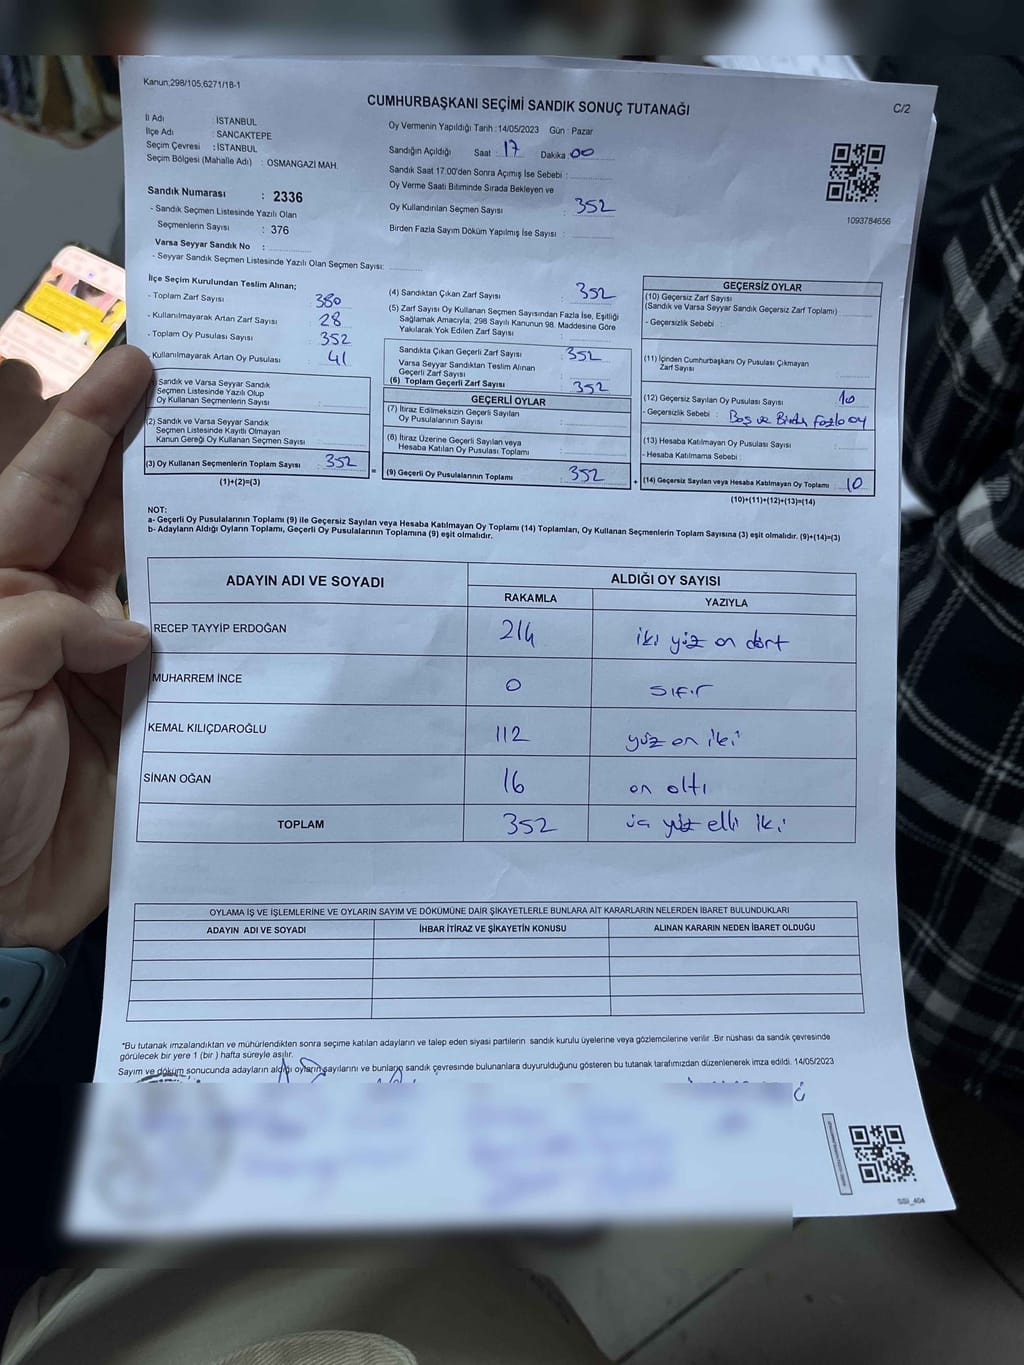 Kanun;298/105,6271/18-1
CUMHURBAŞKANI SEÇİMİ SANDIK SONUÇ TUTANAĞI
C/2
İl Adı : İSTANBUL
İlçe Adı : SANCAKTEPE
Seçim Çevresi : İSTANBUL
Seçim Bölgesi (Mahalle Adı) : OSMANGAZİ MAH.
Sandık Numarası : 2336
- Sandık Seçmen Listesinde Yazılı Olan
Seçmenlerin Sayısı : 376
Varsa Seyyar Sandık No :
- Seyyar Sandık Seçmen Listesinde Yazılı Olan Seçmen Sayısı:
Oy Vermenin Yapıldığı Tarih :14/05/2023 Gün : Pazar
Sandığın Açıldığı Saat : 17 Dakika : 00
Sandık Saat 17:00'den Sonra Açımış İse Sebebi :
Oy Verme Saati Bitiminde Sırada Bekleyen ve
Oy Kullandırılan Seçmen Sayısı : 352
Birden Fazla Sayım Döküm Yapılmış İse Sayısı :
1093784656
İlçe Seçim Kurulundan Teslim Alınan;
- Toplam Zarf Sayısı 380
- Kullanılmayarak Artan Zarf Sayısı 28
- Toplam Oy Pusulası Sayısı 352
- Kullanılmayarak Artan Oy Pusulası 41
Sandık ve Varsa Seyyar Sandık
Seçmen Listesinde Yazılı Olup
Oy Kullanan Seçmenlerin Sayısı :
(2) Sandık ve Varsa Seyyar Sandık
Seçmen Listesinde Kayıtlı Olmayan
Kanun Gereği Oy Kullanan Seçmen Sayısı :
(3) Oy Kullanan Seçmenlerin Toplam Sayısı : 352
(1)+(2)=(3)
(4) Sandıktan Çıkan Zarf Sayısı : 352
(5) Zarf Sayısı Oy Kullanan Seçmen Sayısından Fazla İse, Eşitliği
Sağlamak Amacıyla, 298 Sayılı Kanunun 98. Maddesine Göre
Yakılarak Yok Edilen Zarf Sayısı :
Sandıkta Çıkan Geçerli Zarf Sayısı : 352
Varsa Seyyar Sandıktan Teslim Alınan
Geçerli Zarf Sayısı
(6) Toplam Geçerli Zarf Sayısı : 352
GEÇERLİ OYLAR
(7) İtiraz Edilmeksizin Geçerli Sayılan
Oy Pusulalarının Sayısı :
(8) İtiraz Üzerine Geçerli Sayılan veya
Hesaba Katılan Oy Pusulası Toplamı :
= (9) Geçerli Oy Pusulalarının Toplamı : 352
GEÇERSİZ OYLAR
(10) Geçersiz Zarf Sayısı
(Sandık ve Varsa Seyyar Sandık Geçersiz Zarf Toplamı) :
- Geçersizlik Sebebi :
(11) İçinden Cumhurbaşkanı Oy Pusulası Çıkmayan
Zarf Sayısı :
(12) Geçersiz Sayılan Oy Pusulası Sayısı : 10
- Geçersizlik Sebebi : Boş ve Birden Fazla oy
(13) Hesaba Katılmayan Oy Pusulası Sayısı :
- Hesaba Katılmama Sebebi :
+ (14) Geçersiz Sayılan veya Hesaba Katılmayan Oy Toplamı : 10
(10)+(11)+(12)+(13)=(14)
NOT:
a- Geçerli Oy Pusulalarının Toplamı (9) ile Geçersiz Sayılan veya Hesaba Katılmayan Oy Toplamı (14) Toplamları, Oy Kullanan Seçmenlerin Toplam Sayısına (3) eşit olmalıdır. (9)+(14)=(3)
b- Adayların Aldığı Oyların Toplamı, Geçerli Oy Pusulalarının Toplamına (9) eşit olmalıdır.
ADAYIN ADI VE SOYADI ALDIĞI OY SAYISI
RAKAMLA YAZIYLA
RECEP TAYYİP ERDOĞAN 214 iki yüz on dört
MUHARREM İNCE 0 sıfır
KEMAL KILIÇDAROĞLU 112 yüz on iki
SİNAN OĞAN 16 on altı
TOPLAM 352 üç yüz elli iki
OYLAMA İŞ VE İŞLEMLERİNE VE OYLARIN SAYIM VE DÖKÜMÜNE DAİR ŞİKAYETLERLE BUNLARA AİT KARARLARIN NELERDEN İBARET BULUNDUKLARI
ADAYIN ADI VE SOYADI İHBAR İTİRAZ VE ŞİKAYETİN KONUSU ALINAN KARARIN NEDEN İBARET OLDUĞU
*Bu tutanak imzalandıktan ve mühürlendikten sonra seçime katılan adayların ve talep eden siyasi partilerin sandık kurulu üyelerine veya gözlemcilerine verilir .Bir nüshası da sandık çevresinde
görülecek bir yere 1 (bir ) hafta süreyle asılır.
Sayım ve döküm sonucunda adayların aldığı oyların sayılarını ve bunların sandık çevresinde bulunanlara duyurulduğunu gösteren bu tutanak tarafımızdan düzenlenerek imza edildi. 14/05/2023
SSI_404